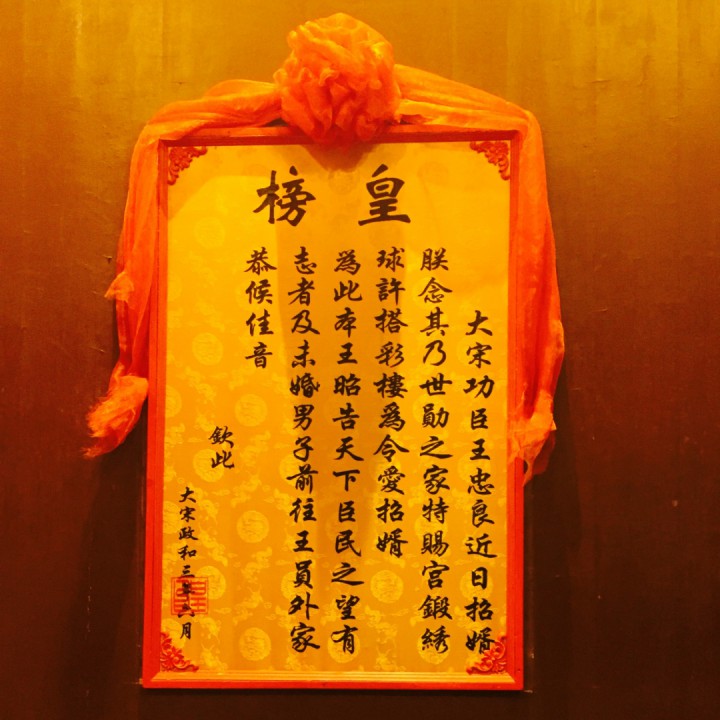 皇榜
大宋功臣王忠良近日招婿
朕念其乃世勛之家特賜宮鍛綉
球許搭彩樓爲令愛招婿
為此本王昭告天下臣民之望有
志者及未婚男子前往王員外家
恭候佳音
欽此
大宋政和三年六月